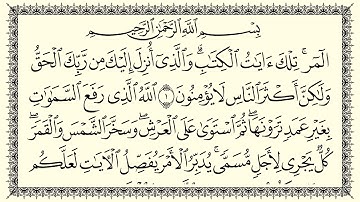 بِسْمِ ٱللَّهِ ٱلرَّحْمَٰنِ ٱلرَّحِيمِ
الٓمٓر ۚ تِلْكَ ءَايَٰتُ ٱلْكِتَٰبِ ۗ وَٱلَّذِىٓ أُنزِلَ إِلَيْكَ مِن رَّبِّكَ ٱلْحَقُّ
وَلَٰكِنَّ أَكْثَرَ ٱلنَّاسِ لَا يُؤْمِنُونَ ١ ٱللَّهُ ٱلَّذِى رَفَعَ ٱلسَّمَٰوَٰتِ
بِغَيْرِ عَمَدٍ تَرَوْنَهَا ۖ ثُمَّ ٱسْتَوَىٰ عَلَى ٱلْعَرْشِ ۖ وَسَخَّرَ ٱلشَّمْسَ وَٱلْقَمَرَ ۖ
كُلٌّ يَجْرِى لِأَجَلٍ مُّسَمًّى ۚ يُدَبِّرُ ٱلْأَمْرَ يُفَصِّلُ ٱلْءَايَٰتِ لَعَلَّكُم